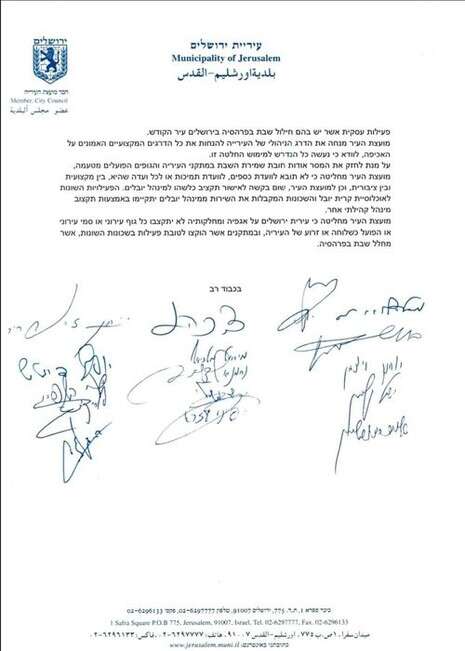 ירושלים
עיריית ירושלים
Municipality of Jerusalem
بلدية اورشليم-القدس
חבר מועצת העירייה
Member, City Council
عضو مجلس البلدية
פעילות עסקית אשר יש בהם חילול שבת בפרהסיה בירושלים עיר הקודש.
מועצת העיר מנחה את הדרג הניהולי של העירייה להנחות את כל הדרגים המקצועיים האמונים על
האכיפה, לוודא כי נעשה כל הנדרש למימוש החלטה זו.
על מנת לחזק את המסר אודות חובת שמירת השבת במתקני העיריה והגופים הפועלים מטעמה,
מועצת העיר מחליטה כי לא תובא לוועדת כספים, לוועדת תמיכות או לכל ועדה שהיא, בין מקצועית
ובין ציבורית, וכן למועצת העיר, שום בקשה לאישור תקציב כלשהו למינהל יובלים. הפעילויות השונות
לאוכלוסיית קרית יובל והשכונות המקבלות את השירות ממינהל יובלים יתקיימו באמצעות תקצוב
מינהל קהילתי אחר.
מועצת העיר מחליטה כי עירית ירושלים על אגפיה ומחלקותיה לא יתקצבו כל גוף עירוני או סמי עירוני
או הפועל כשלוחה או זרוע של העיריה, ובמתקנים אשר הוקצו לטובת פעילות בשכונות השונות, אשר
מחלל שבת בפרהסיה.
בכבוד רב
כיכר ספרא 1, ת.ד. 775, ירושלים 91007, טלפון 02-6297777, פקס: 02-6296133
1 Safra Square P.O.B 775, Jerusalem, 91007, Israel, Tel. 02-6297777, Fax. 02-6296133
ميدان سفرا، ١ ص.ب ٧٧٥، اورشليم-القدس ٩١٠٠٧، تلفون ٦٢٩٧٧٧٧-٠٢، فاكس: ٦٢٩٦١٣٣-٠٢
www.jerusalem.muni.il כתובתנו באינטרנט: